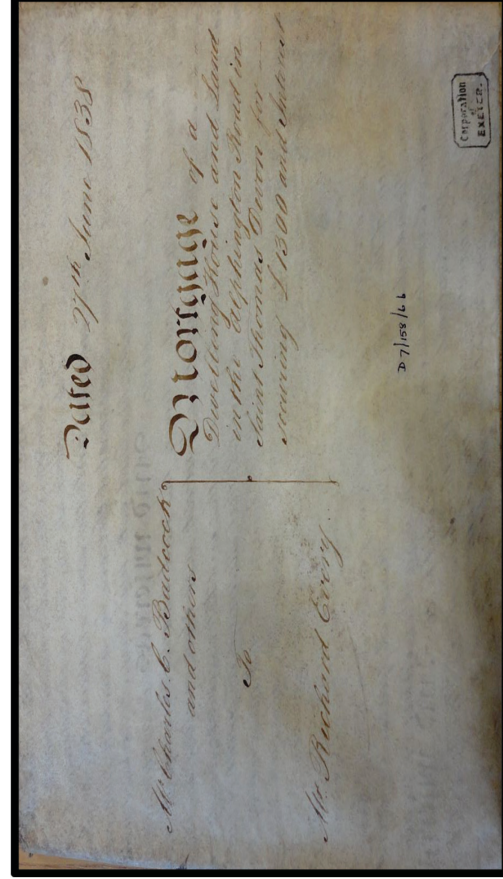 Dated 27th June 1838
Mr Charles C. Babcock
and others
To
Mr. Richard Every
Mortgage of a
Dwelling House and Land
in the Alphington Road in
Saint Thomas Devon for
securing £1300 and Interest
D7/158/66
Corporation
of
EXETER.